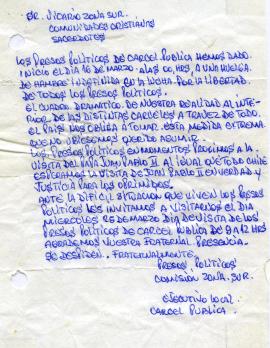 SR. VICARIO ZONA SUR.
COMUNIDADES CRISTIANAS
SACERDOTES
LOS PRESOS POLITICOS DE CARCEL PUBLICA HEMOS DADO
INICIO EL DIA 16 DE MARZO. A LAS 00 HRS, A UNA HUELGA
DE HAMBRE INDEFINIDA EN LA LUCHA POR LA LIBERTAD
DE TODOS LOS PRESOS POLITICOS.
EL CUADRO DRAMATICO. DE NUESTRA REALIDAD AL INTE-
RIOR DE LAS DISTINTAS CARCELES A TRAVEZ DE TODO.
EL PAIS NOS OBLIGA A TOMAR. ESTA MEDIDA EXTREMA
QUE NO HUBIESEMOS QUERIDO ASUMIR.
LOS PRESOS POLITICOS EN MOMENTOS PROXIMOS A LA
VISITA DEL PAPA JUAN PABLO II AL IGUAL QUE TODO CHILE
ESPERAMOS LA VISITA DE JUAN PABLO II EN VERDAD Y
JUSTICIA PARA LOS OPRIMIDOS.
ANTE LA DIFICIL SITUACION QUE VIVEN LOS PRESOS
POLITICOS LES INVITAMOS A VISITARNOS EL DIA
MIERCOLES 25 DE MARZO DIA DE VISITA DE LOS
PRESOS POLITICOS DE CARCEL PUBLICA DE 9 A 12 HRS
AGRADEMOS VUESTRA FRATERNAL PRESENCIA.
SE DESPIDEN. FRATERNALMENTE.
PRESOS POLITICOS
COMISION ZONA. SUR.
EJECUTIVO LOCAL.
CARCEL PUBLICA.